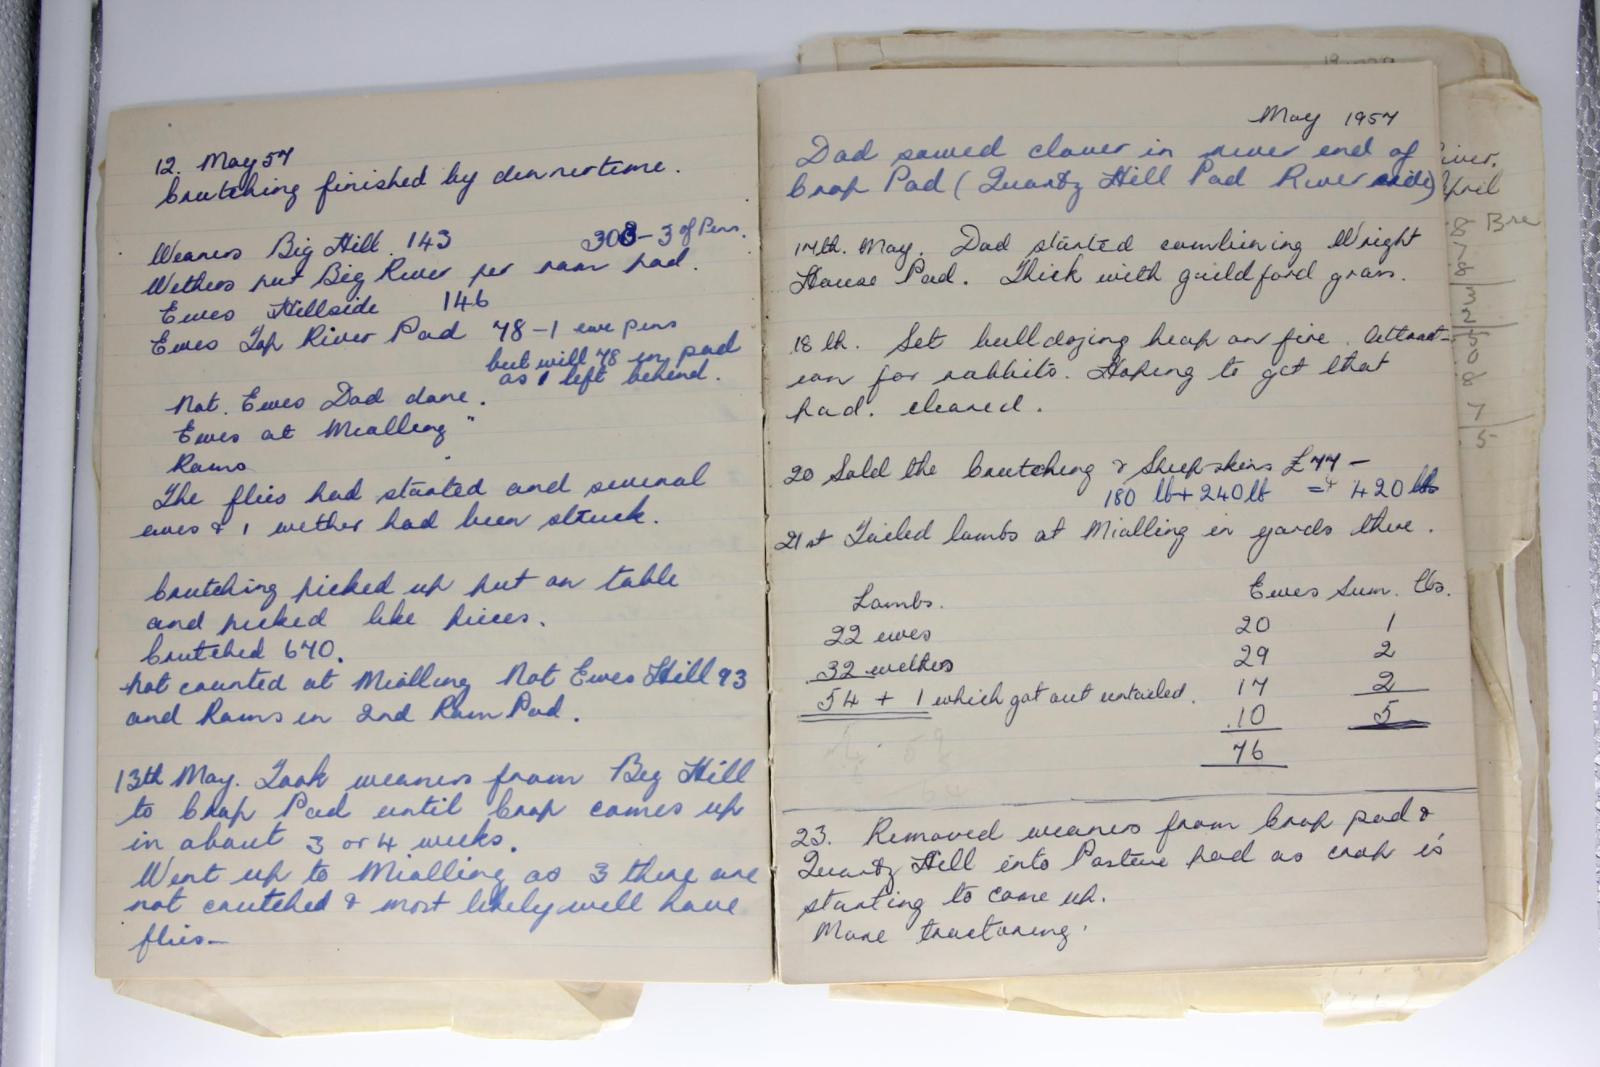 12. May 57
Crutching finished by dinnertime.
Weaners Big Hill. 143
308 - 3 of Pens.
Wethers put Big River per ram pad.
Ewes Hillside 146
Ewes Top River Pad 78 - 1 ewe pens
but will 78 in pad
as 1 left behind.
Not. Ewes Dad done.
Ewes at Mialling "
Rams
The flies had started and several
ewes & 1 wether had been struck.
Crutching picked up put on table
and picked like pieces.
Crutched 670.
not counted at Mialling Not Ewes Hill 93
and Rams in 2nd Ram Pad.
13th May. Took weaners from Big Hill
to Crop Pad until Crop comes up
in about 3 or 4 weeks.
Went up to Mialling as 3 there are
not crutched & most likely will have
flies—
May 1957
Dad sowed clover in river end of
Crop Pad (Quartz Hill Pad River side)
17th. May. Dad started combining Wright
House Pad. Thick with guildford grass.
18 th. Set bulldozing heap on fire. Attract-
ion for rabbits. Hoping to get that
pad. cleared.
20 Sold the Crutching & Sheepskins £77 -
180 lb + 240 lb = 420 lbs
21st Tailed lambs at Mialling in yards there.
Lambs. Ewes Sum. lbs.
22 ewes 20 1
32 wethers 29 2
54 + 1 which got out untailed. 17 2
10 5
76
23. Removed weaners from Crop pad &
Quartz Hill into Pasture pad as crop is
starting to come up.
More tractoring.
iver.
April
8 Bre
7
8
3
2
5
0
8
7
5